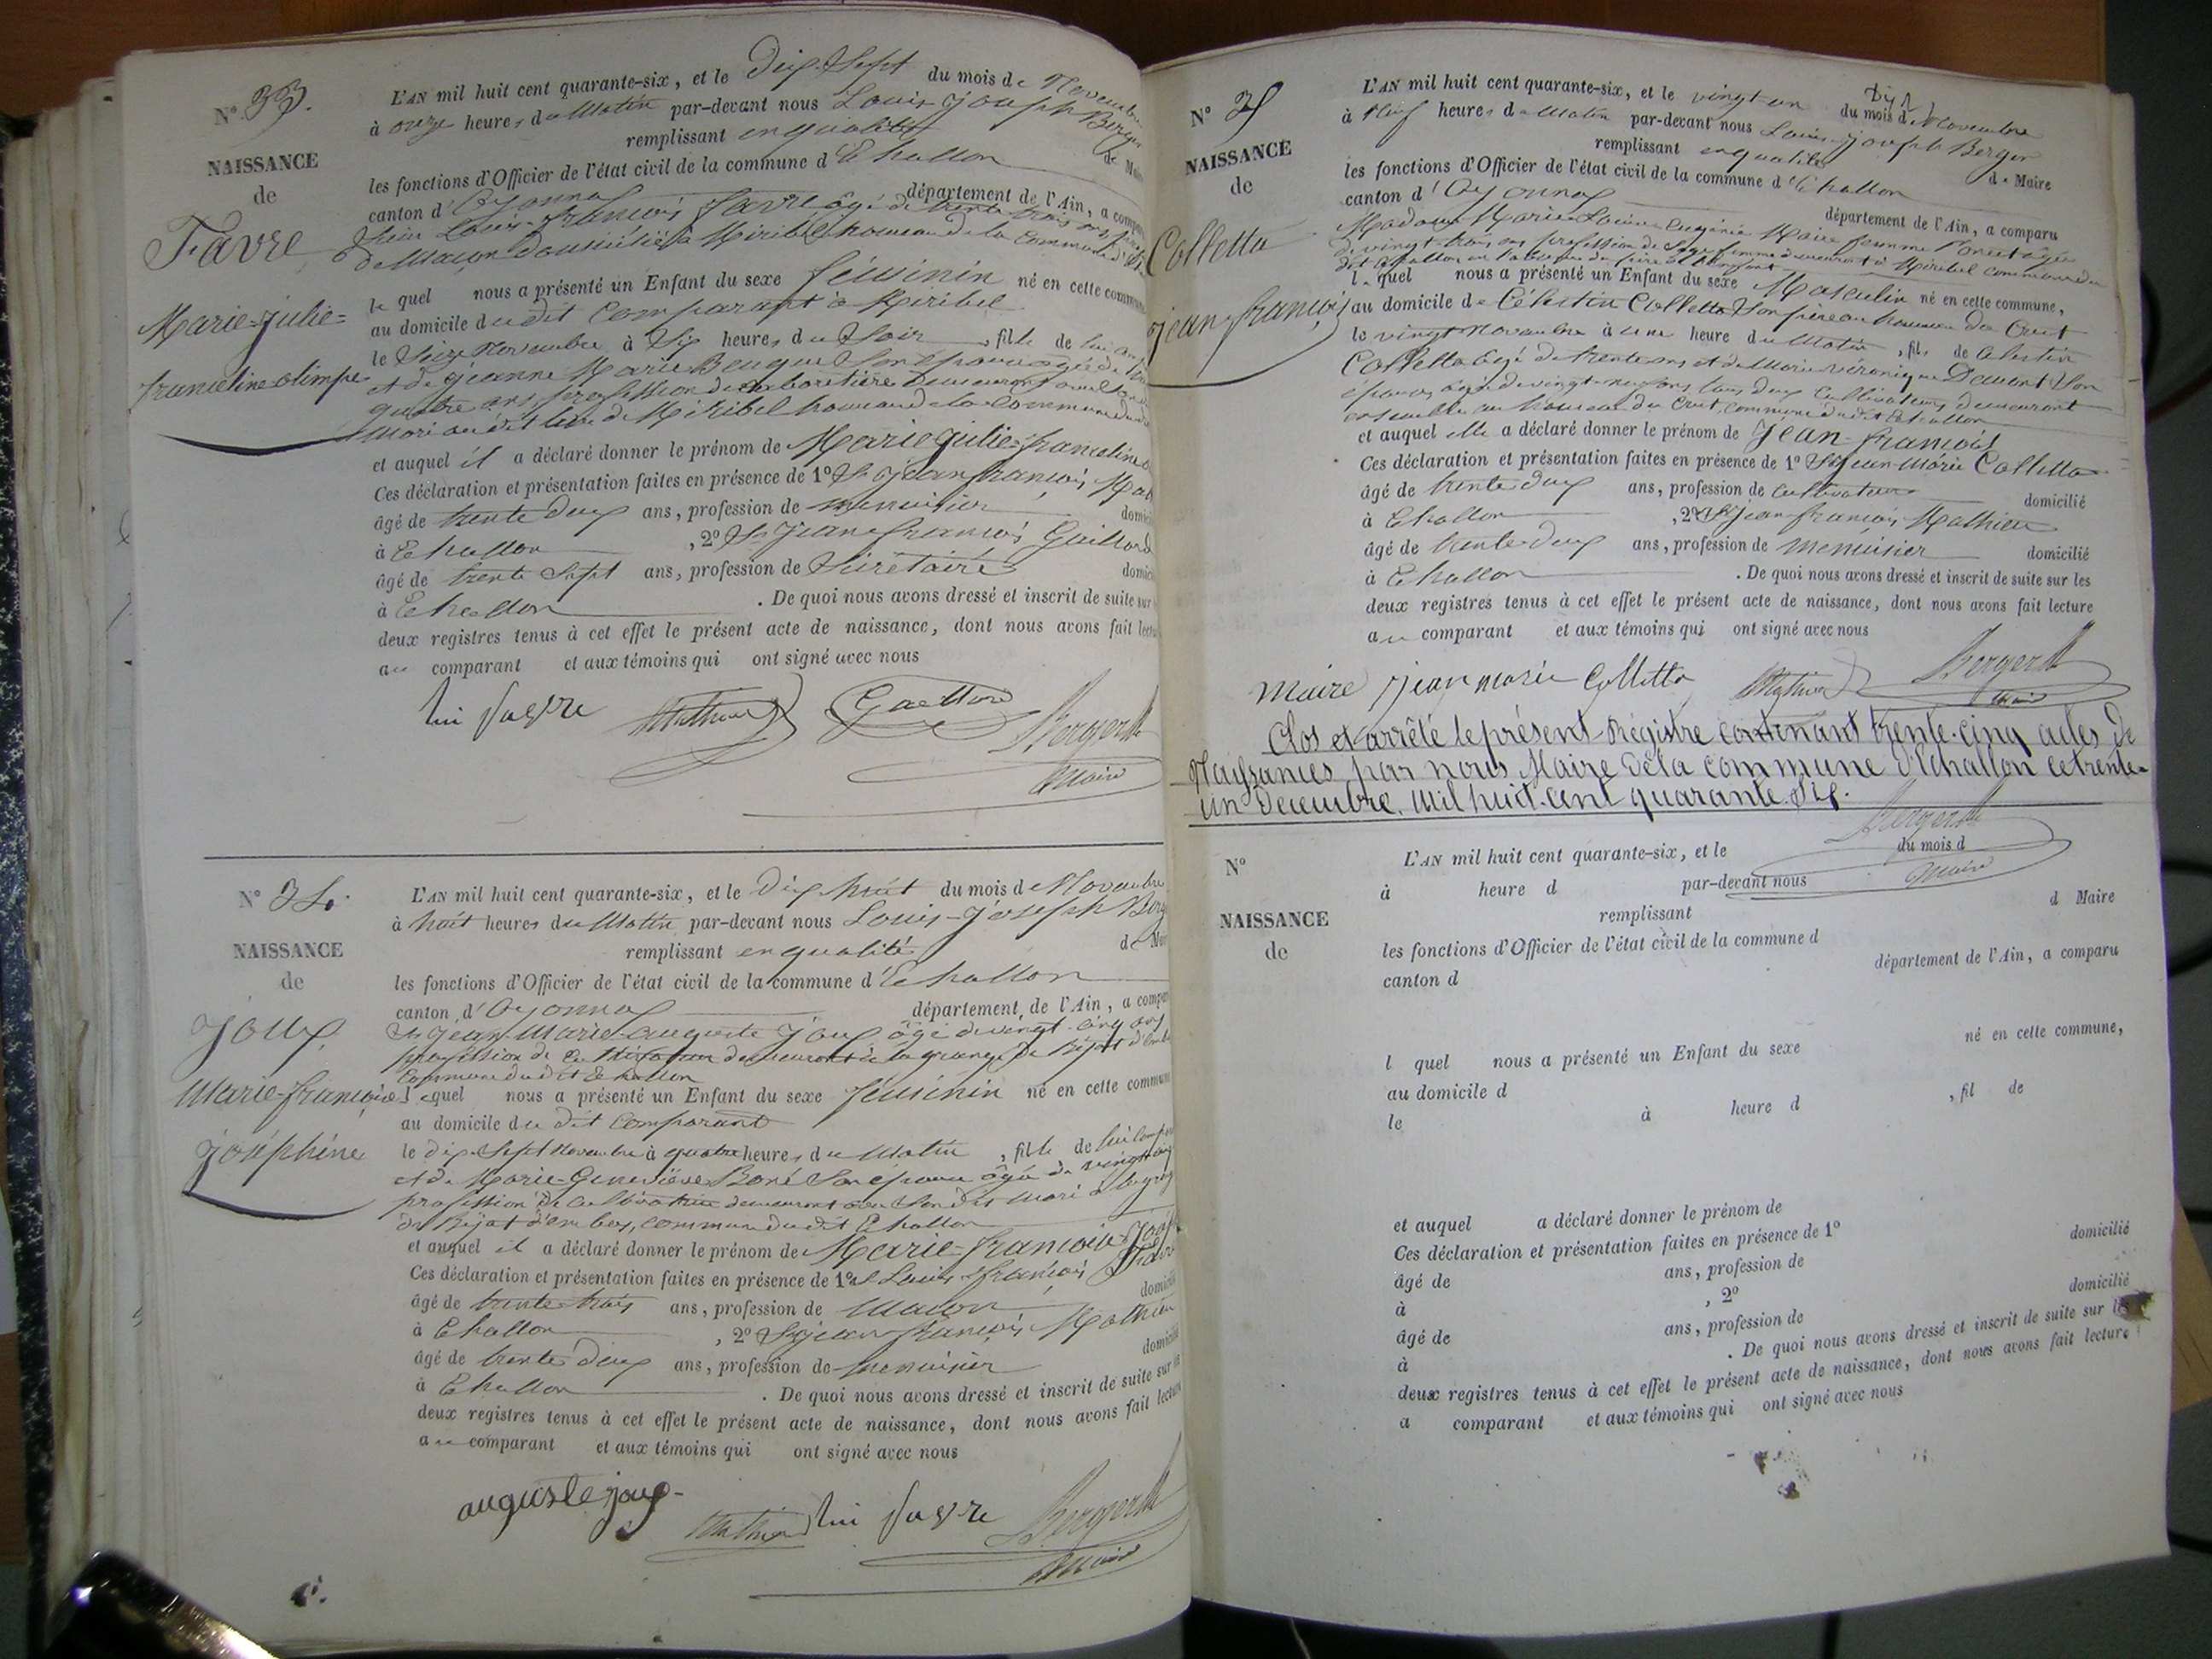 N° 33.
NAISSANCE
de
Favre
Marie-julie-
franceline olimpe
L'AN mil huit cent quarante-six, et le Dix Sept du mois de Novembre
à onze heures du Matin par-devant nous Louis joseph Berger
remplissant en qualité de Maire
les fonctions d'Officier de l'état civil de la commune d'Echallon
canton d'Oyonnax département de l'Ain, a comparu
Louis-françois favre âgé de trente trois ans
de Maçon domicilié à Miribel hameau de la commune
lequel nous a présenté un Enfant du sexe féminin né en cette commune
au domicile du dit comparant à Miribel
le Seize Novembre à Six heures du Soir, fille de lui comparant
et de jeanne Marie son épouse âgée de
quatre ans, profession de demeurant avec
mari au dit lieu de Miribel hameau de la commune
et auquel il a déclaré donner le prénom de Marie julie-francéline
Ces déclaration et présentation faites en présence de 1° Sr jean françois
âgé de trente deux ans, profession de menuisier
à Echallon, 2° Sr jean françois Guillard
âgé de trente sept ans, profession de Sécrétaire
à Echallon. De quoi nous avons dressé et inscrit de suite sur
deux registres tenus à cet effet le présent acte de naissance, dont nous avons fait lecture
au comparant et aux témoins qui ont signé avec nous
Mathieu Berger
Maire
N° 34.
NAISSANCE
de
Joux
Marie-françoise
joséphine
L'AN mil huit cent quarante-six, et le Dix huit du mois de Novembre
à huit heures du Matin par-devant nous Louis-joseph Berger
remplissant en qualité de Maire
les fonctions d'Officier de l'état civil de la commune d'Echallon
canton d'Oyonnax département de l'Ain, a comparu
Sr jean-Marie-auguste joux âgé de vingt-cinq ans
profession de cultivateur demeurant à la grange de Bijat
commune du dit Echallon
lequel nous a présenté un Enfant du sexe féminin né en cette commune
au domicile du dit comparant
le dix-sept Novembre à quatre heures du Matin, fille de lui comparant
et de Marie-Geneviève son épouse âgée de vingt
profession de cultivatrice demeurant avec son dit mari à la grange
de Bijat commune du dit Echallon
et auquel il a déclaré donner le prénom de Marie-françoise-
Ces déclaration et présentation faites en présence de 1° Sr Louis-françois favre
âgé de trente-trois ans, profession de Maçon domicilié
à Echallon, 2° Sr jean françois Mathieu
âgé de trente deux ans, profession de menuisier domicilié
à Echallon. De quoi nous avons dressé et inscrit de suite sur les
deux registres tenus à cet effet le présent acte de naissance, dont nous avons fait lecture
au comparant et aux témoins qui ont signé avec nous
auguste joux
Mathieu Berger
Maire
N° 35
NAISSANCE
de
Colletta
jean françois
L'AN mil huit cent quarante-six, et le vingt un du mois de Novembre
à Neuf heures du Matin par-devant nous Louis-joseph Berger
remplissant en qualité de Maire
les fonctions d'Officier de l'état civil de la commune d'Echallon
canton d'Oyonnax département de l'Ain, a comparu
Madame Marie Louise Eugénie Maire femme Poncet âgée
de vingt-trois ans profession de Sage femme demeurant à Miribel commune du
dit Echallon en l'absence du père de l'enfant
lequel nous a présenté un Enfant du sexe Masculin né en cette commune,
au domicile de Célestin Colletta son père au hameau du Cret
le vingt Novembre à une heure du Matin, fils de Célestin
Colletta âgé de trente ans et de Marie véronique son
épouse âgée de vingt-neuf ans tous deux cultivateurs demeurant
ensemble au hameau du Cret, commune du dit Echallon
et auquel elle a déclaré donner le prénom de Jean-françois
Ces déclaration et présentation faites en présence de 1° Sr Jean-Marie Colletta
âgé de trente deux ans, profession de cultivateur domicilié
à Echallon, 2° Sr jean françois Mathieu
âgé de trente deux ans, profession de menuisier domicilié
à Echallon. De quoi nous avons dressé et inscrit de suite sur les
deux registres tenus à cet effet le présent acte de naissance, dont nous avons fait lecture
au comparant et aux témoins qui ont signé avec nous
Maire jean marie Colletta Mathieu Berger
Maire
Clos et arrêté le présent Régistre contenant trente-cinq actes de
Naissances par nous Maire de la commune d'Echallon ce trente-
un Décembre mil huit-cent quarante-six.
Berger
Maire
N°
NAISSANCE
de
L'AN mil huit cent quarante-six, et le du mois d
à heure d par-devant nous
remplissant d Maire
les fonctions d'Officier de l'état civil de la commune d
canton d département de l'Ain, a comparu
l quel nous a présenté un Enfant du sexe né en cette commune,
au domicile d
le à heure d , fil de
et auquel a déclaré donner le prénom de
Ces déclaration et présentation faites en présence de 1°
âgé de ans, profession de domicilié
à , 2°
âgé de ans, profession de domicilié
à . De quoi nous avons dressé et inscrit de suite sur les
deux registres tenus à cet effet le présent acte de naissance, dont nous avons fait lecture
a comparant et aux témoins qui ont signé avec nous